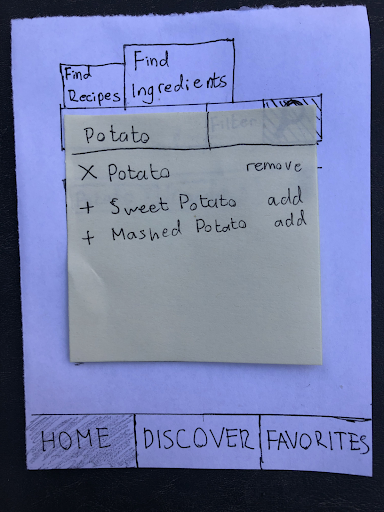 Find
Recipes
Find
Ingredients
Potato
Filter
X Potato remove
+ Sweet Potato add
+ Mashed Potato add
HOME DISCOVER FAVORITES